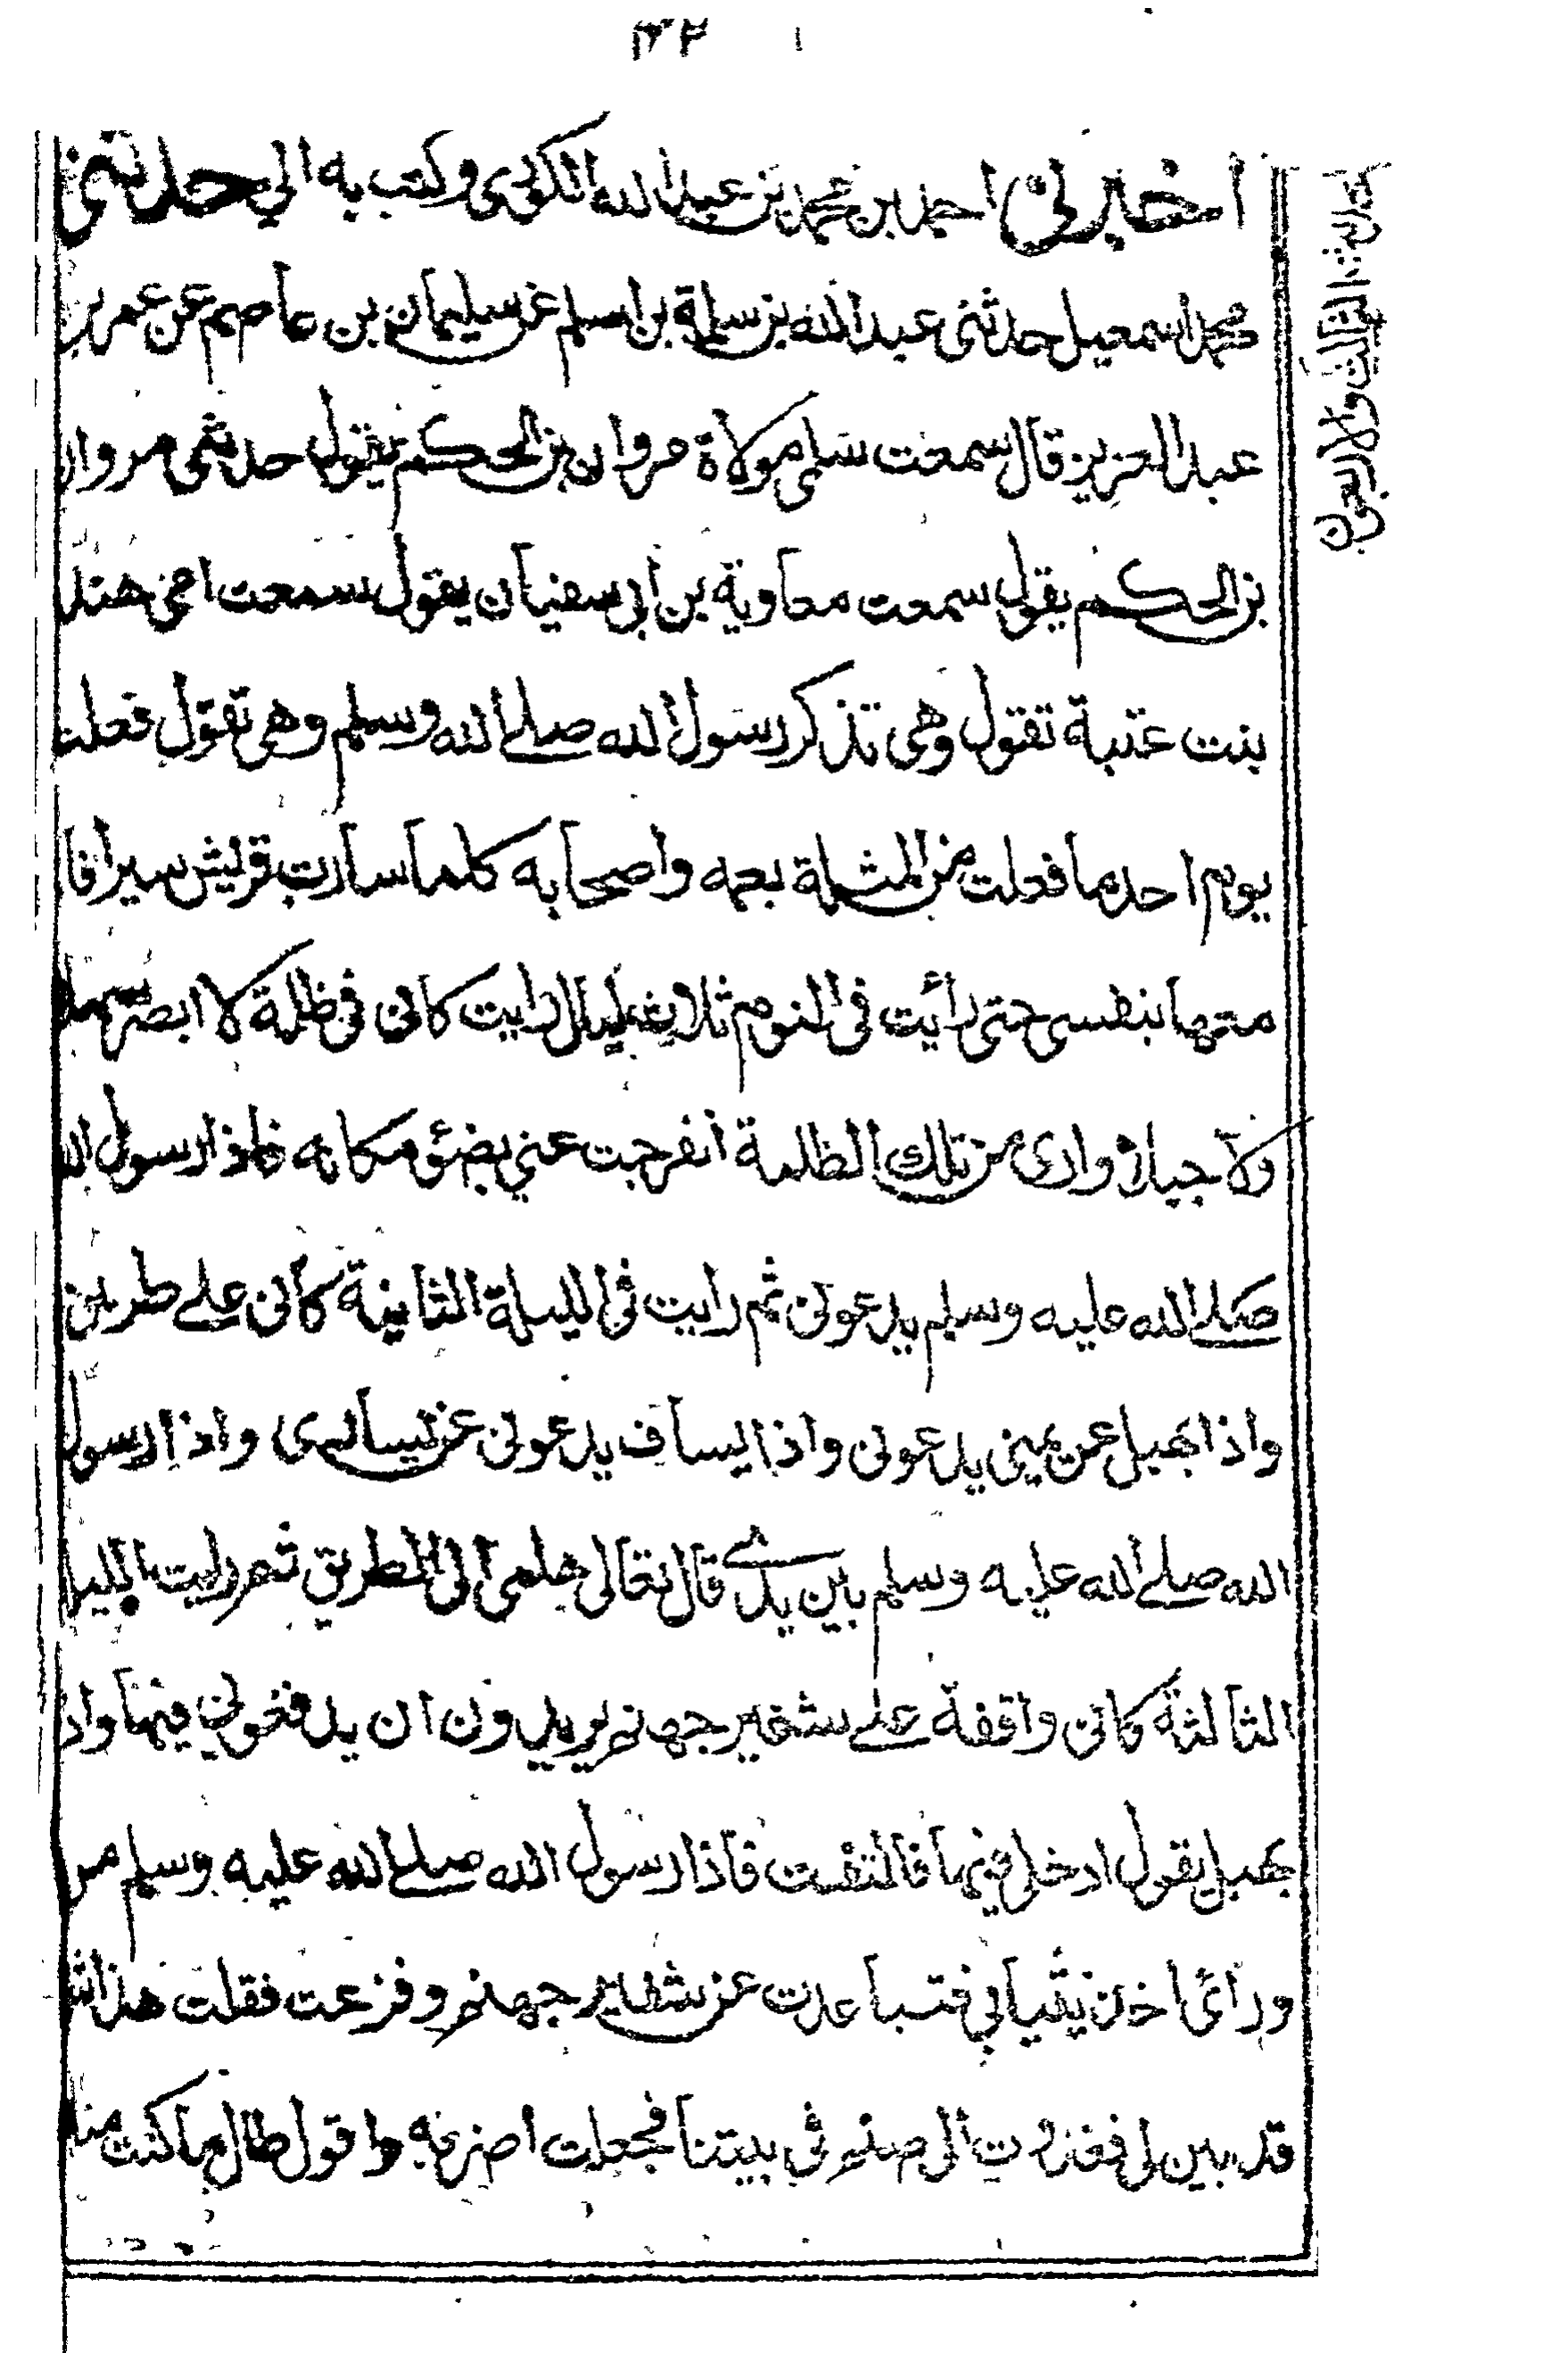 ١٣٢
اخبرنى احمد بن محمد بن عبد الله الكوفى وكتب به الي حدثنى
محمد اسمعيل حدثنى عبد الله بن سلمة بن اسلم عن سليمان بن عاصم عن عمر بن
عبد العزيز قال سمعت سلمى مولاة مروان بن الحكم يقول حدثنى مروان
بن الحكم يقول سمعت معاوية بن ابى سفيان يقول سمعت امى هند
بنت عتبة تقول وهى تذكر رسول الله صلے الله وسلم وهى تقول فعلت
يوم احد ما فعلت من المثلة بعمه واصحابه كلما سارت قريش سيرا فا
معها بنفسى حتى رأيت فى النوم ثلاث ليال رايت كانى فى ظلمة لا ابصر سهلا
ولا جبلا وارى من تلك الظلمة انفرجت عني بضئو مكانه فاذا رسول الله
صلے الله عليه وسلم يدعونى ثم رايت فى الليلة الثانية كأنى علے طريق
واذا بهبل عن يمينى يدعونى واذا يساف يدعونى عن يسارى واذا رسول
الله صلے الله عليه وسلم بين يدے قال تعالى هلمى الى الطريق ثم رايت الليلة
الثالثة كانى واقفة علے شفير جهنم يريدون ان يدفعونى فيها واذا
بهبل يقول ادخلى فيها فالتفت فاذا رسول الله صلے الله عليه وسلم من
ورائى اخذ بثيابي فتباعدت عن شفير جهنم وفزعت فقلت هذا شئ
قد بين لى فغدوت الى صنم فى بيتنا فجعلت اضربه واقول طال ما كنت منه
الحديث الثالث والاربعون